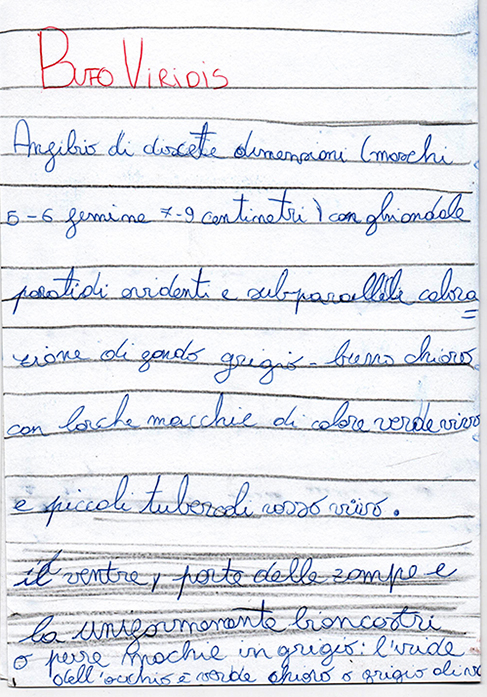 BUFO VIRIDIS
Angibio di discette dimenzioni (maschi
5-6 femine 7-9 centimetri) con ghiandole
parotidi evidenti e subparallele colora=
zione di fondo grigio-bruno chioro
con larche macchie di colore verde vivo
e piccoli tubercoli rosso vivo.
il ventre, parte delle zampe e
la unigormenante biancastri
o pere machie in grigio: l'iride
dell'occhio è verde chioro o grigio di